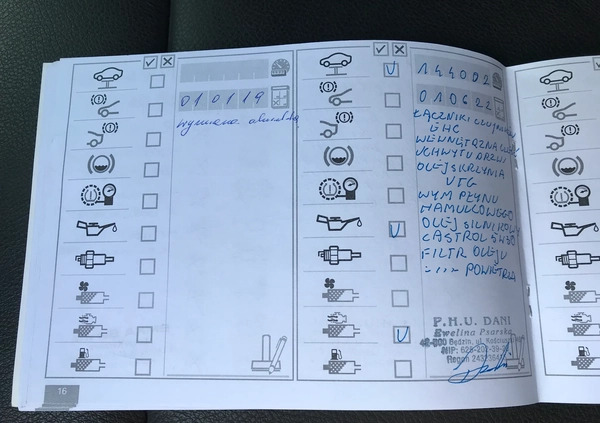 01 01 19
wymiana
144002
01 06 22
ŁĄCZNIKI
EHC
WEWNĘTRZNA
UCHWYTU DRZWI
OLEJ SKRZYNIA
VTG
WYM PŁYNU
HAMULCOWEGO
OLEJ SILNIKOWY
CASTROL 5W30
FILTR OLEJU
-,,- POWIETRZA
P.H.U. DANI
Ewelina Psarska
42-500 Będzin, ul. Kościuszki
NIP: 625-207-39-
Regon 24323641
16